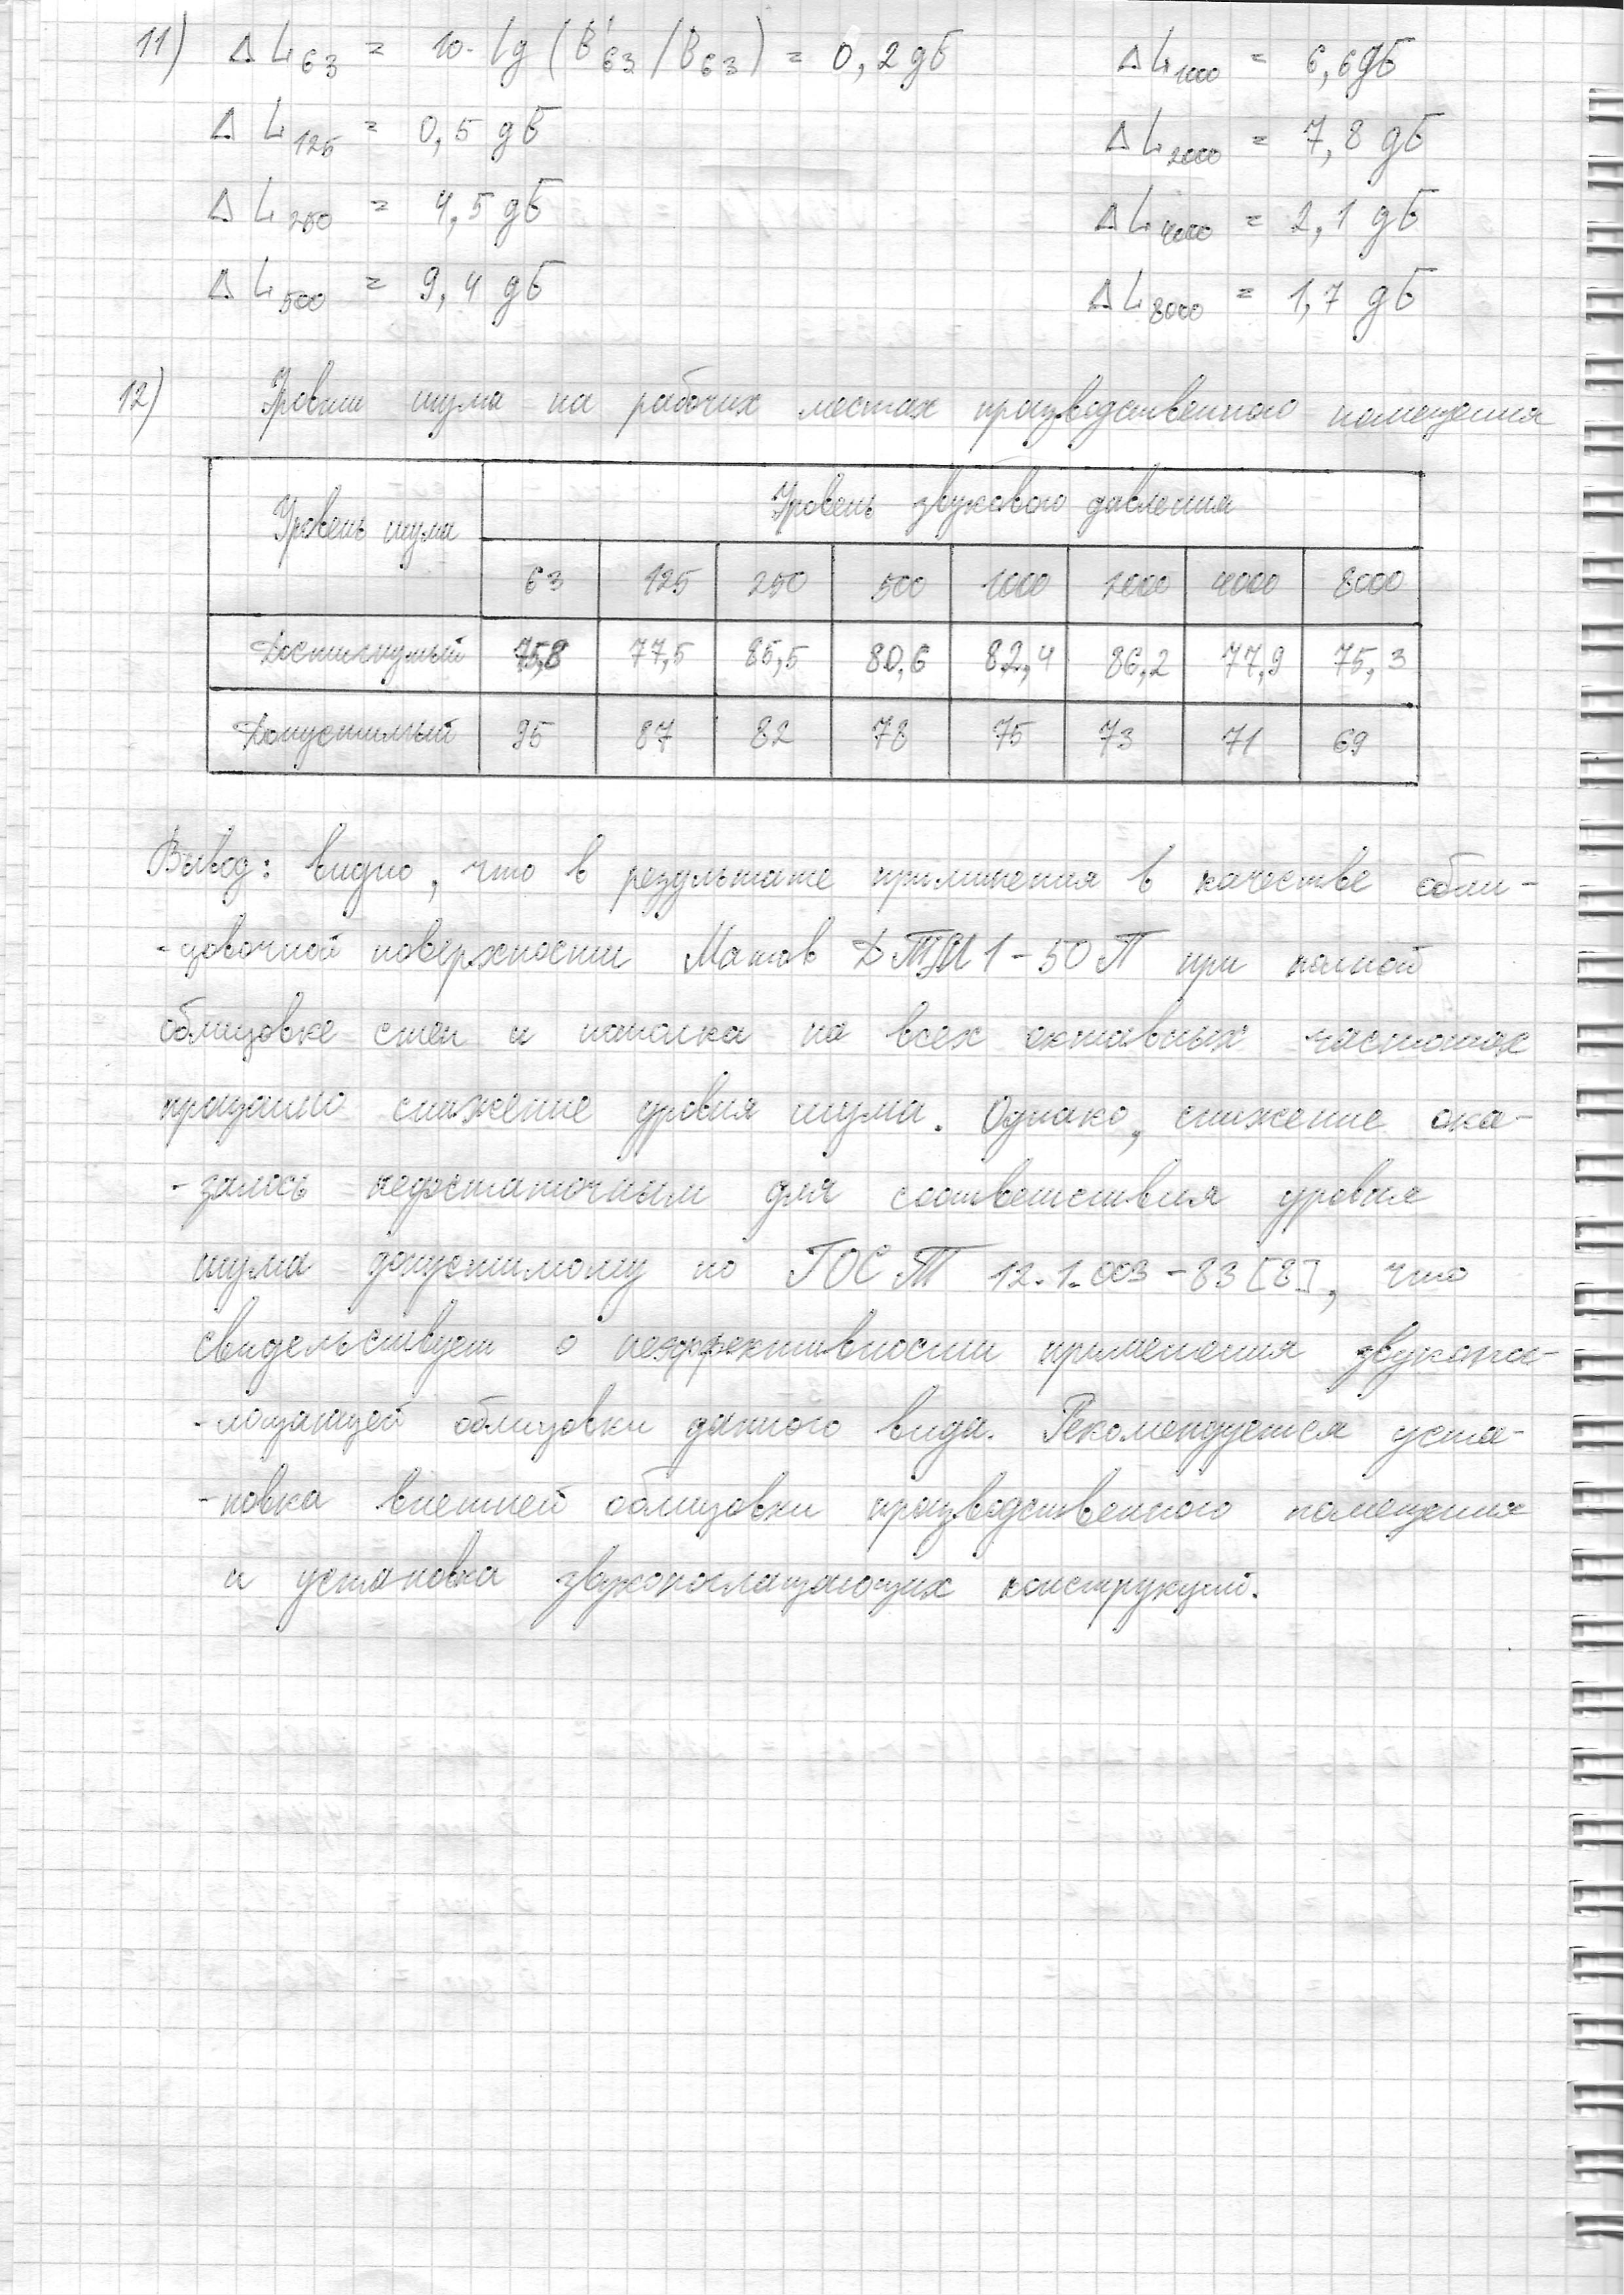 11) Δ L₆₃ = 10 · lg (B'₆₃ / B₆₃) = 0,2 дБ Δ L₁₀₀₀ = 6,6 дБ
Δ L₁₂₅ = 0,5 дБ Δ L₂₀₀₀ = 7,8 дБ
Δ L₂₅₀ = 4,5 дБ Δ L₄₀₀₀ = 2,1 дБ
Δ L₅₀₀ = 9,4 дБ Δ L₈₀₀₀ = 1,7 дБ
12) Уровни шума на рабочих местах производственного помещения
Уровень шума Уровень звукового давления
63 125 250 500 1000 2000 4000 8000
Достигнутый 75,8 77,5 85,5 80,6 82,4 86,2 77,9 75,3
Допустимый 95 87 82 78 75 73 71 69
Вывод: видно, что в результате применения в качестве обли-
-цовочной поверхности Матов 1-50 П при полной
облицовке стен и потолка на всех октавных частотах
произошло снижение уровня шума. Однако, снижение ока-
-залось недостаточным для соответствия уровня
шума допустимому по ГОСТ 12.1.003-83 [8], что
свидельствует о неэффективности применения звукопог-
-лощающей облицовки данного вида. Рекомендуется уста-
-новка внешней облицовки производственного помещения
и установка звукопоглащающих конструкций.